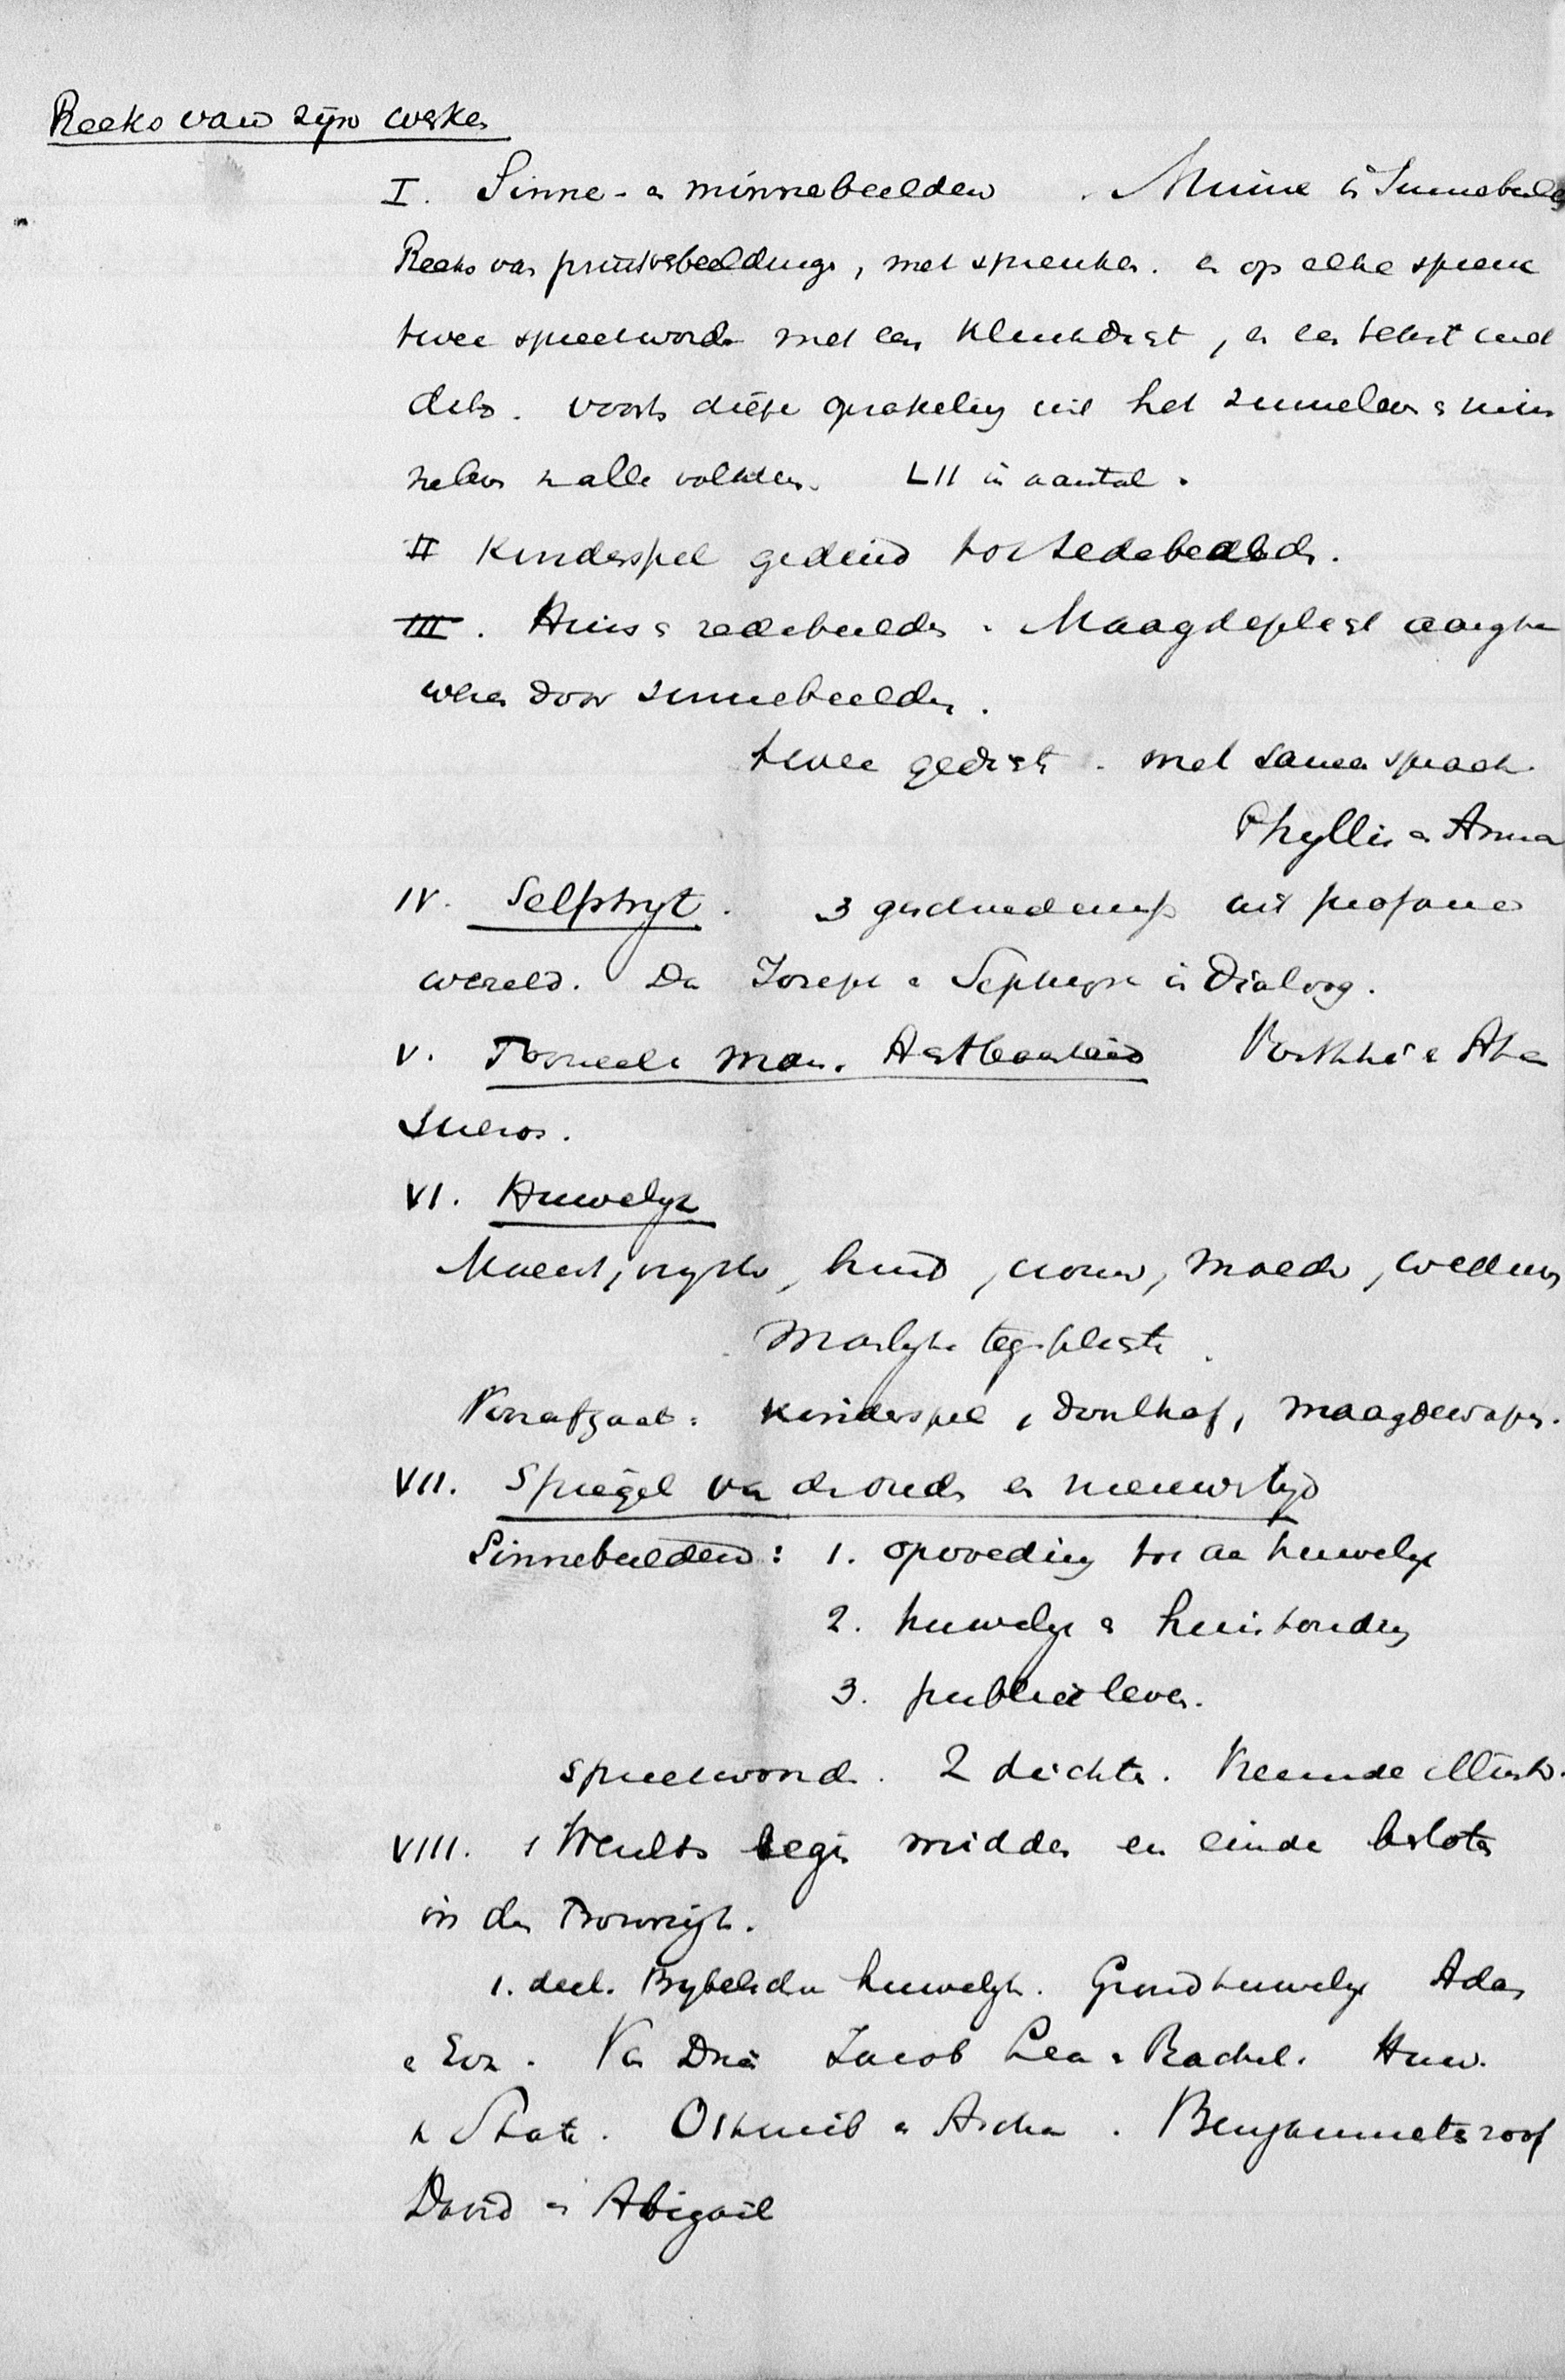 Reeks van zijn werken
I. Sinne- en minnebeelden . Minne in Sinnebeelde
Reeks van printverbeeldinge, met spreuken. en op elke spreuk
twee spreekwoorden met een klinkdicht, en een tekst
dito. voorts diepe oprakeling uit het zinneleven & min
neleven van alle volkeren. LII in aantal.
II Kinderspel geduid tot Sedebeelden.
III. Huis & zedebeelden. Maagdeplicht aange
wezen door sinnebeelden.
twee gedicht. met samenspraak.
Phyllis en Anna
IV. Selfstryt. 3 geschiedenis uit profane
wereld. Dan Joseph en Sephyra in Dialoog.
V. Toneele man. Achtbaarheid Vasthi en Aha
sueros.
VI. Huwelyk
Maecht, vryster, bruid, vrouw, moeder, weduwe
Manlyke tegenplicht.
Voorafgaat: Kinderspel, doolhof, maagdewapen.
VII. Spiegel van de ouden en nieuwen tijd
Sinnebeelden: 1. opvoeding tot aan huwelyk
2. huwelyk & huishouding
3. publiek leven.
spreekwoorden. 2 dichten. Vreemde illustr.
VIII. 's Werelds begin midden en einde besloten
in den Trouwringh.
1. deel. Bybelsche huwelyken. Grondhuwelyk Adam
en Eva. Van Drie Jacob Lea & Rachel. Huw.
Othniel en Ascha. Benjaminieten roof
David en Abigail